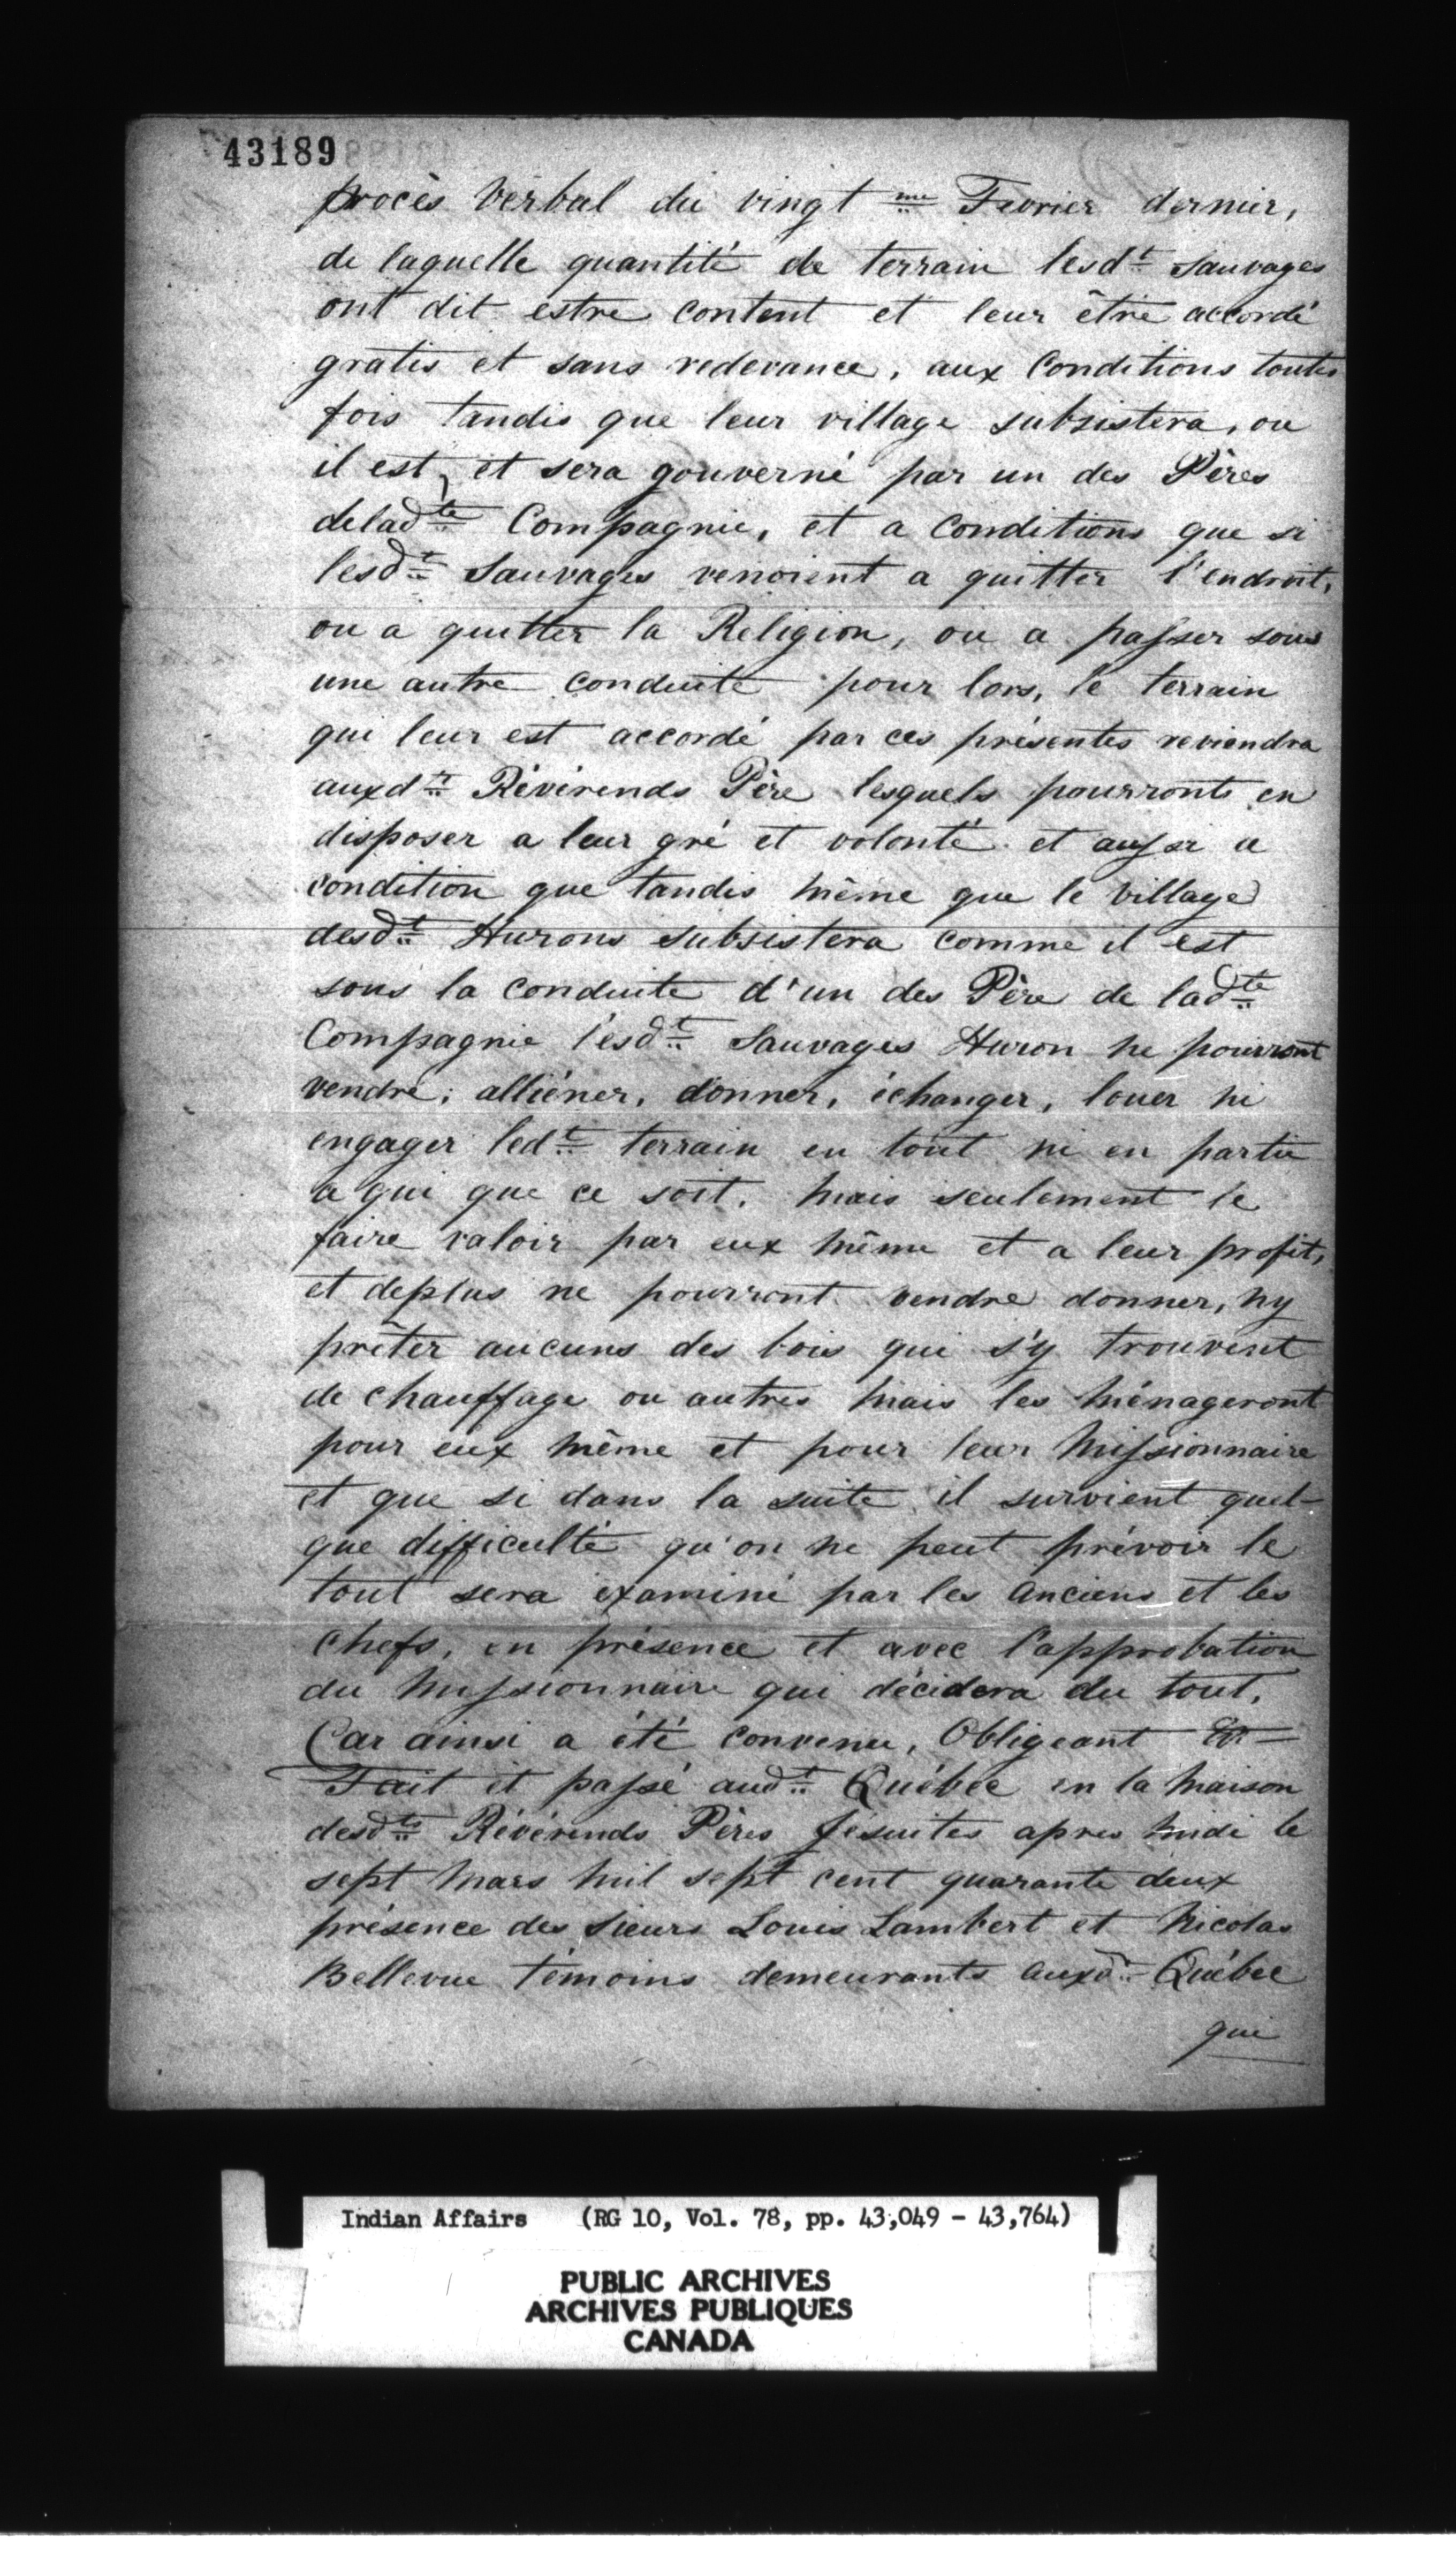 43189
procès verbal du vingt me Fevrier dernier,
de laquelle quantité de terrain lesdt sauvages
ont dit estre content et leur être accordé
gratis et sans redevance, aux Conditions toutes
fois tandis que leur village subsistera, ou
il est, et sera gouverné par un des Pères
deladte Compagnie, et a Conditions que si
lesdt Sauvages venoient a quitter l'endroit,
ou a quitter la Religion, ou a passer sous
une autre conduite pour lors, le terrain
qui leur est accordé par ces présentes reviendra
auxdts Révérends Père lesquels pourronts en
disposer a leur gré et volonté et aussi a
condition que tandis même que le village
desdt Hurons subsistera comme il est
sous la conduite d'un des Père de ladte
Compagnie lesdt Sauvages Huron ne pourront
vendre, alliéner, donner, échanger, louer ni
engager ledt terrain en tout ni en partie
a qui que ce soit, mais seulement le
faire valoir par eux même et a leur profit,
et deplus ne pourront vendre donner, ny
prêter aucuns des bois qui s'y trouvent
de chauffage ou autres mais les ménageront
pour eux même et pour leur Missionnaire
et que si dans la suite il survient quel-
que difficulté qu'on ne peut prévoir le
tout sera examiné par les anciens et les
chefs, en présence et avec l'approbation
du Missionnaire qui décidera du tout,
Car ainsi a été convenu, Obligeant &c—
Fait et passé audt Québec en la maison
desdts Révérends Pères Jésuites apres midi le
sept Mars mil sept cent quarante deux
présence des Sieurs Louis Lambert et Nicolas
Bellevue témoins demeurants auxdt Québec
qui
Indian Affairs (RG 10, Vol. 78, pp. 43,049 - 43,764)
PUBLIC ARCHIVES
ARCHIVES PUBLIQUES
CANADA